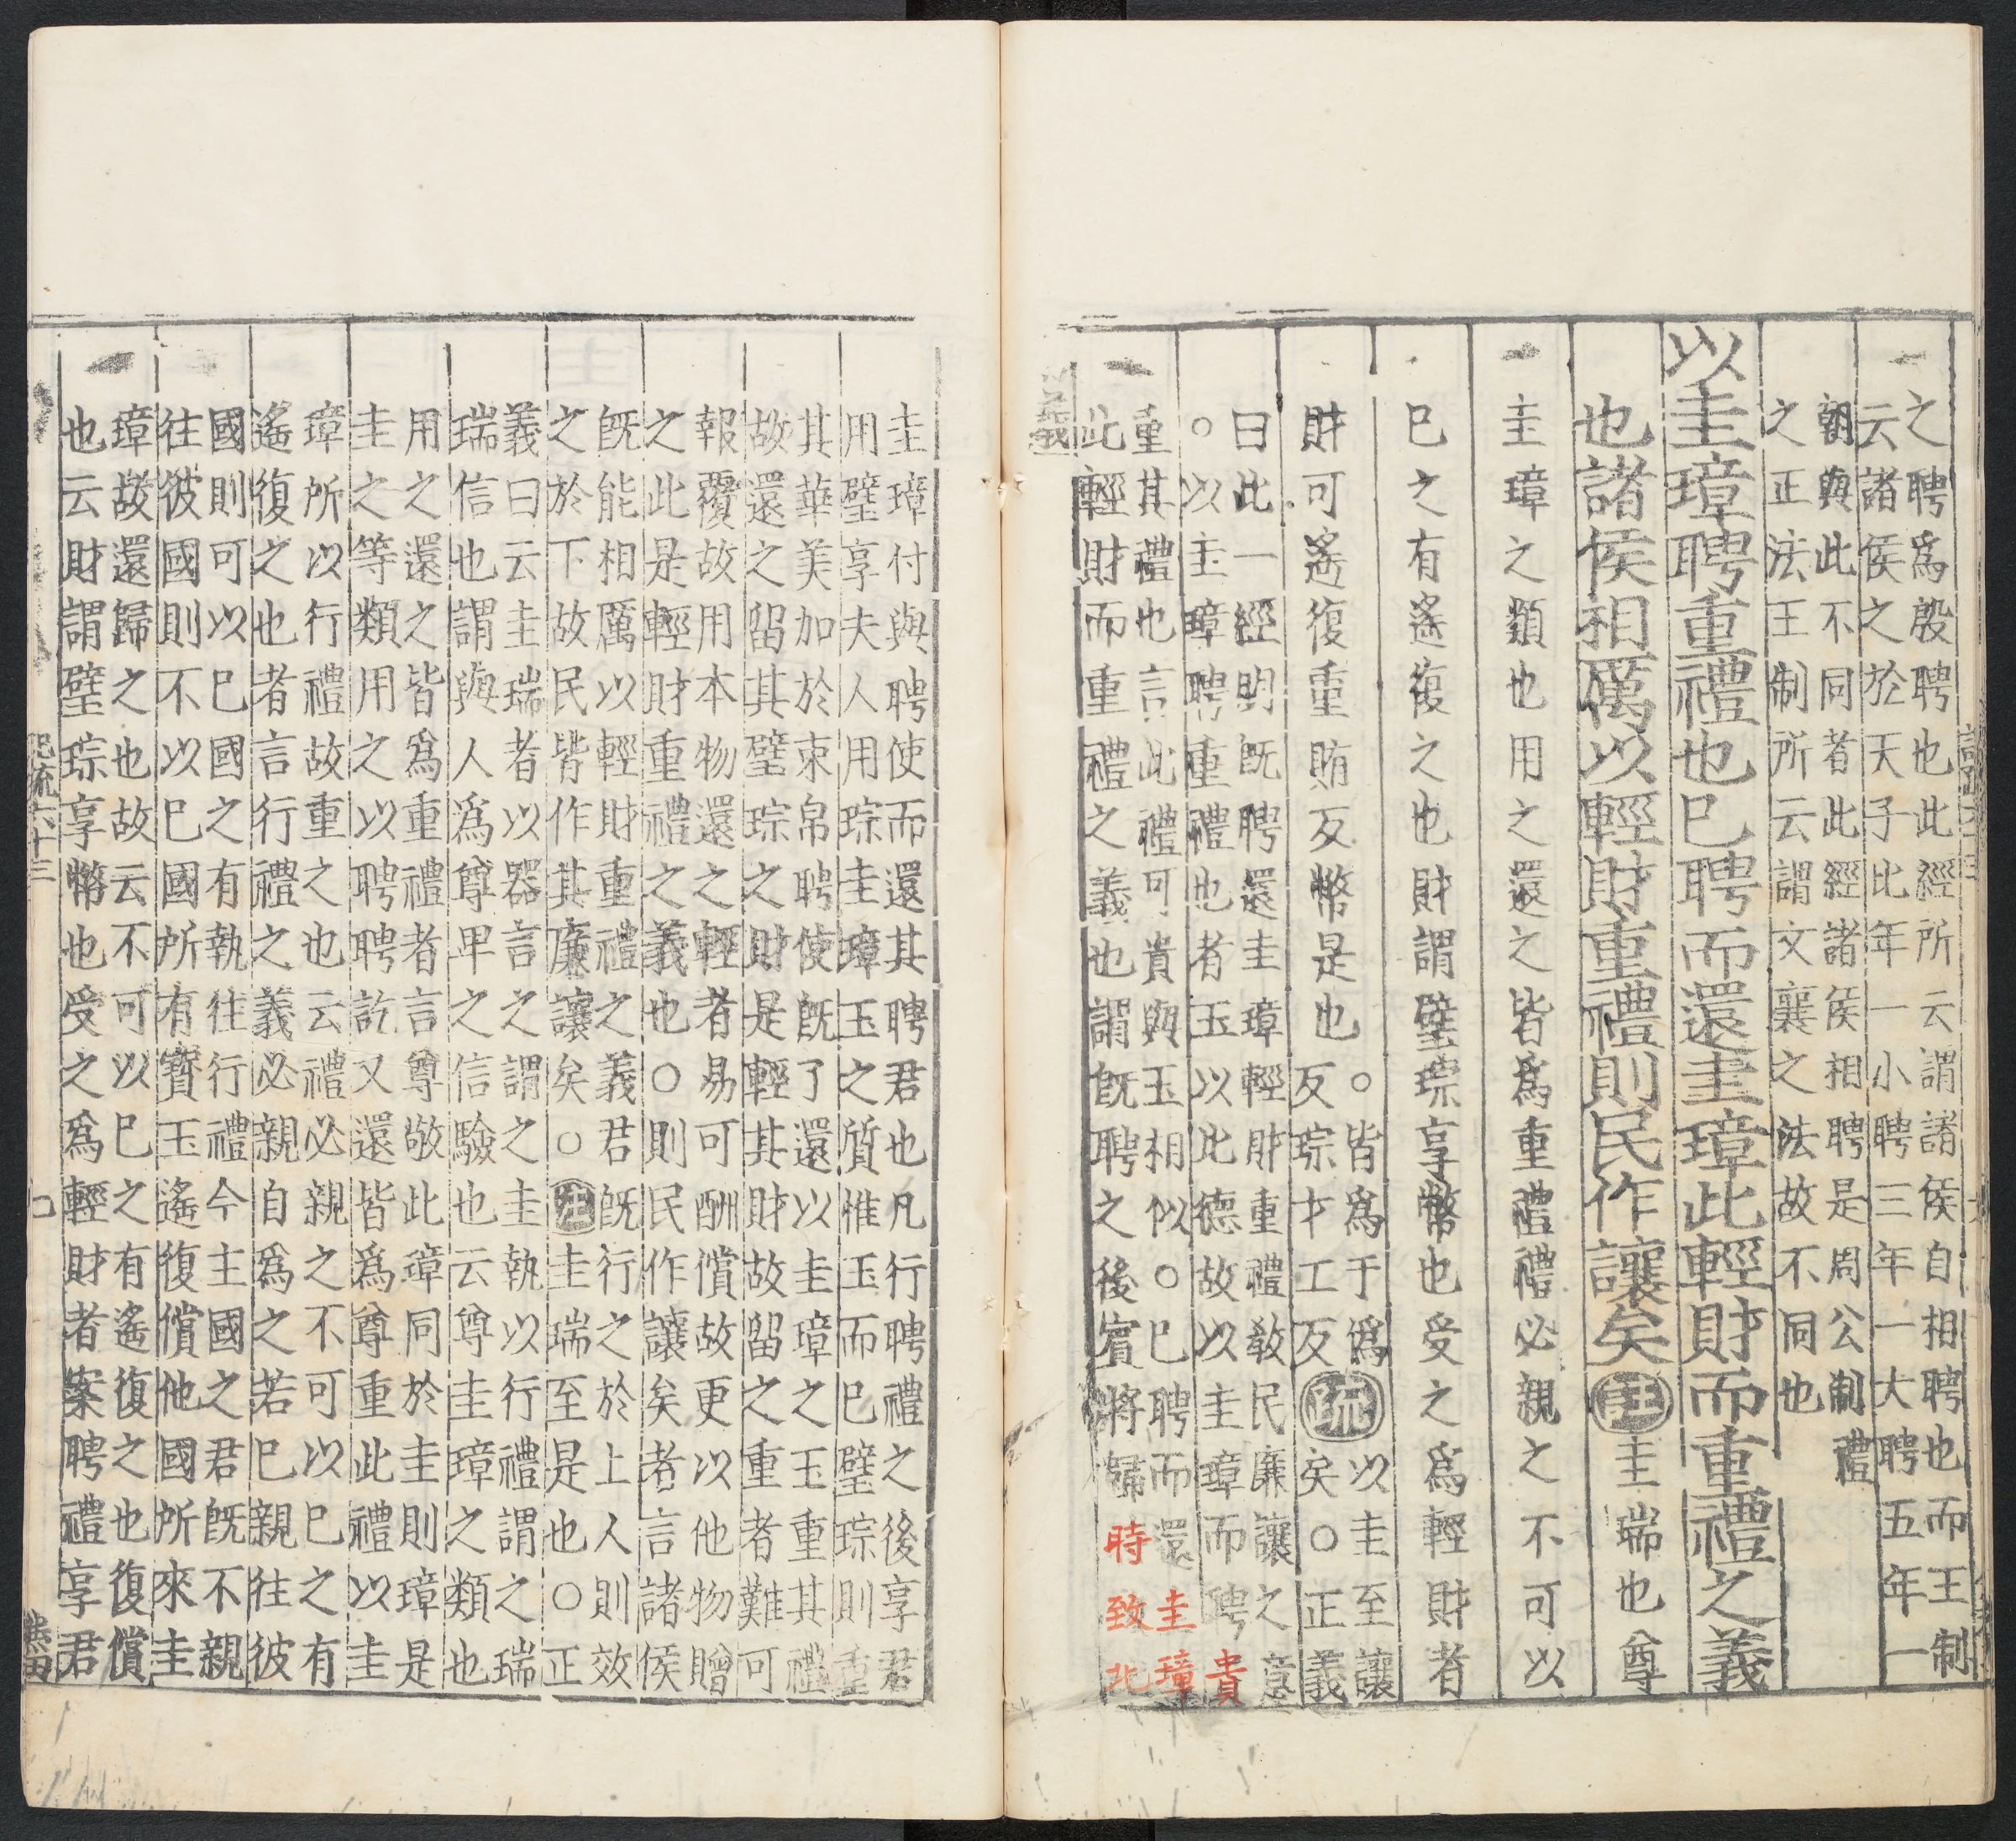 之聘爲殷聘也此經所云謂諸侯自相聘也而王制
云諸侯之於天子比年一小聘三年一大聘五年一
朝與此不同者此經諸侯相聘是周公制禮
之正法王制所云謂文襄之法故不同也
以圭璋聘重禮也巳聘而還圭璋此輕財而重禮之義
也諸侯相厲以輕財重禮則民作讓矣注圭瑞也尊
圭璋之類也用之還之皆爲重禮禮必親之不可以
巳之有遙復之也財謂璧琮享幣也受之爲輕財者
財可遙復重賄反幣是也
○皆爲于僞
反琮才工反
疏
以圭至讓
矣○正義
曰此一經明旣聘還圭璋輕財重禮敎民廉讓之意
○以圭璋聘重禮也者玉以此德故以圭璋而聘貴
重其禮也言此禮可貴與玉相似○巳聘而還圭璋
此輕財而重禮之義也謂旣聘之後賓將歸時致此
義
圭璋付與聘使而還其聘君也凡行聘禮之後享君
用璧享夫人用琮圭璋玉之質惟玉而巳璧琮則重
其華美加於束帛聘使旣了還以圭璋之玉重其禮
故還之留其璧琮之財是輕其財故留之重者難可
報覆故用本物還之輕者易可酬償故更以他物贈
之此是輕財重禮之義也○則民作讓矣者言諸侯
旣能相厲以輕財重禮之義君旣行之於上人則效
之於下故民皆作其廉讓矣○注圭瑞至是也○正
義曰云圭瑞者以器言之謂之圭執以行禮謂之瑞
瑞信也謂與人爲尊卑之信驗也云尊圭璋之類也
用之還之皆爲重禮者言尊敬此璋同於圭則璋是
圭之等類用之以聘聘訖又還皆爲尊重此禮以圭
璋所以行禮故重之也云禮必親之不可以巳之有
遙復之也者言行禮之義必親自爲之若巳親往彼
國則可以巳國之有執往行禮今主國之君旣不親
往彼國則不以巳國所有寶玉遙復償他國所來圭
璋故還歸之也故云不可以巳之有遙復之也復償
也云財謂璧琮享幣也受之爲輕財者案聘禮享君
記流六十三
七